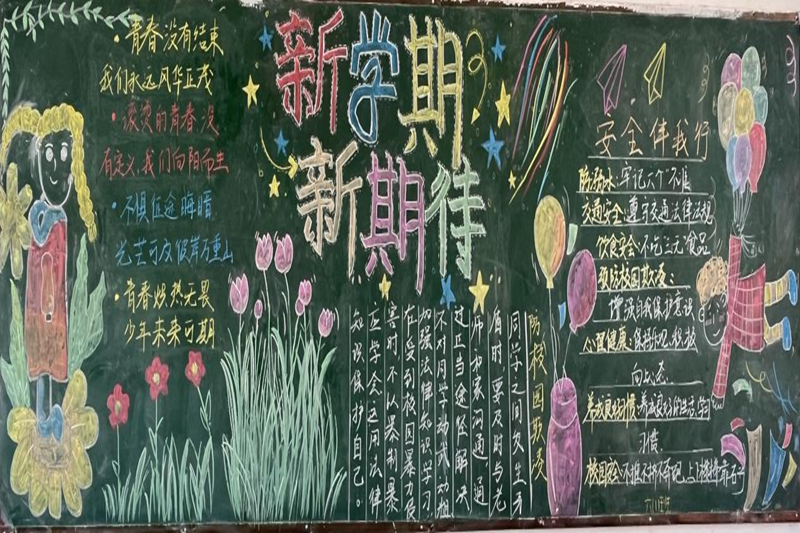 新学期
新期待
·青春没有结束
我们永远风华正茂
·滚烫的青春没
有定义,我们向阳而生
·不惧征途晦暗
光芒可及彼岸万重山
·青春炽热无畏
少年未来可期
防校园欺凌
同学之间发生矛
盾时,要及时与老
师、家沟通,通
过正当途径解决
不对同学动武动粗
加强法律知识学习,
在受到校园暴力侵
害时不以暴制暴
应学会运用法律
知识保护自己。
安全伴我行
防溺水:牢记六个"不准
交通安全:遵守交通法律法规
饮食安全:不吃三无食品
预防校园欺凌:
增强自我保护意识
心理健康:保持乐观、积极
向上心态
养成良好习惯:养成良好的生活、学习
习惯